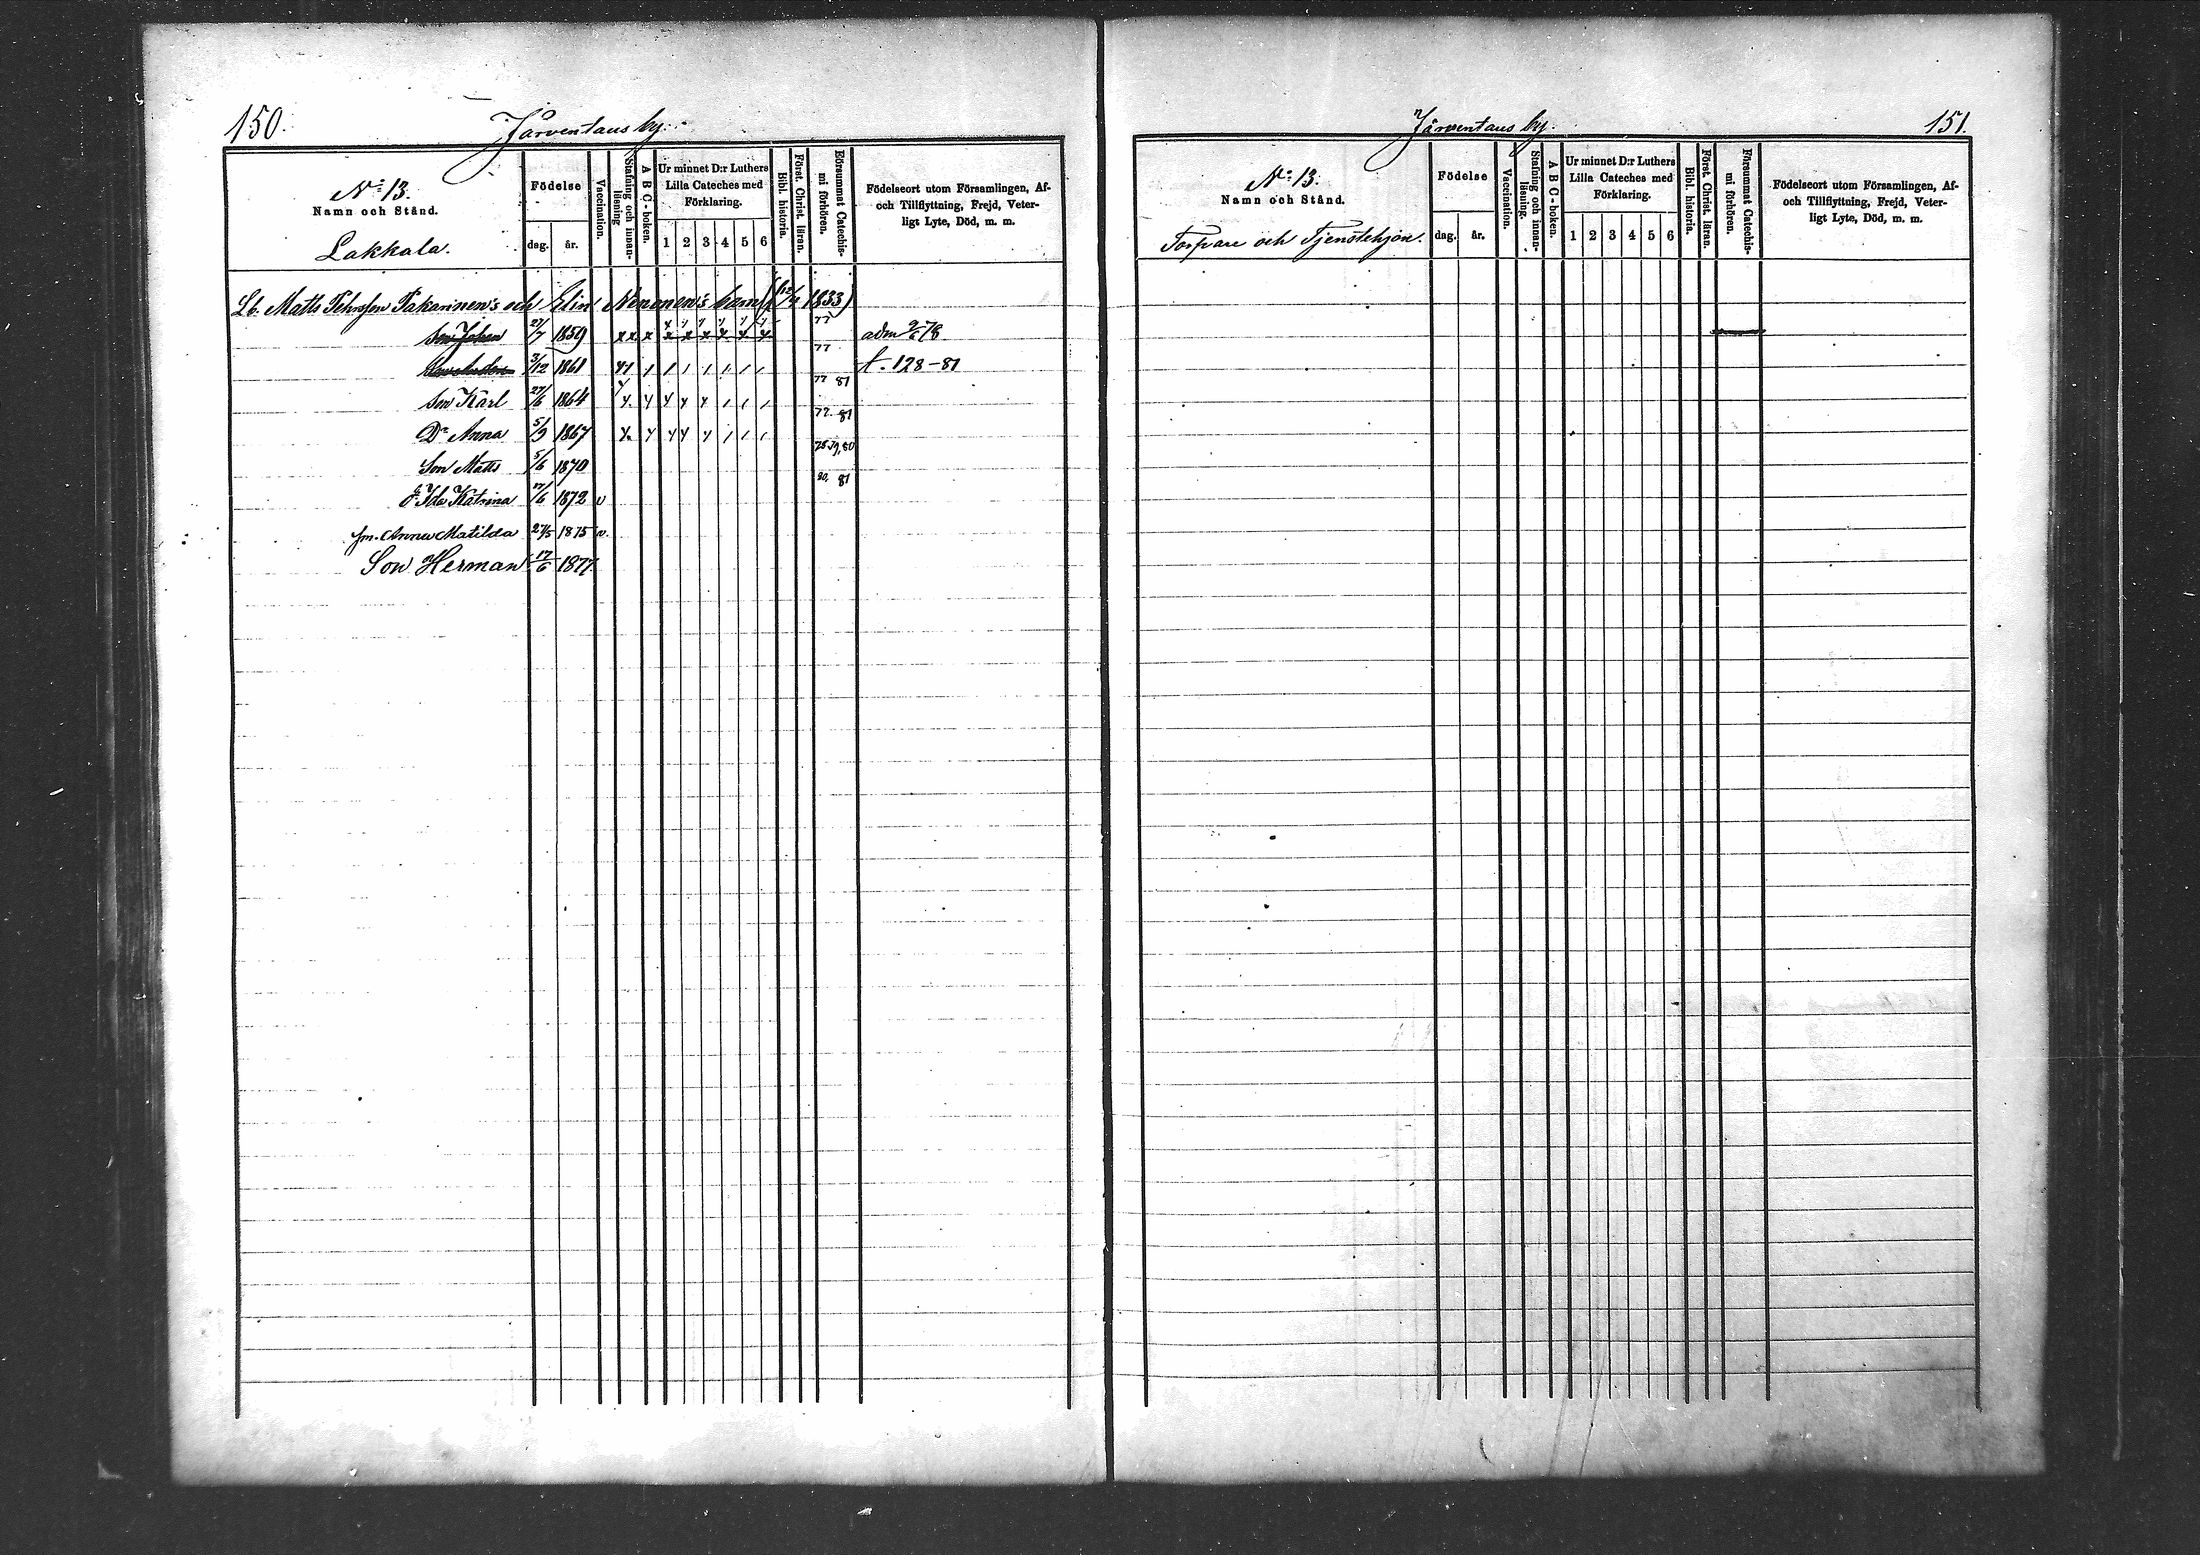 150.
Järventaus by.
N:o 13.
Namn och Stånd.
Lakkala.
Födelse
dag. år.
Vaccination.
Stafning och innanläsning
A B C - boken.
Ur minnet D:r Luthers
Lilla Cateches med
Förklaring.
1 2 3 4 5 6
Bibl. historia.
Först. Christ. läran.
Försummat Catechismi förhören.
Födelseort utom Församlingen, Af-
och Tillflyttning, Frejd, Veter-
ligt Lyte, Död, m. m.
Lb. Matts Pehrsson Pakarinen's och Elin Nenonen's barn (12/4 1833)
Son Johan 27/7 1859 x x x x x x x x x 77 adm 9/6 78.
3/12 1861 77 f. 128-81
Son Karl 27/6 1864 77 81
Dr Anna 5/9 1867 77. 81
Son Matts 5/6 1870 78.79,80
d. Ida Katrina 17/6 1872 v 80, 81
Anna Matilda 27/5 1875 v.
Son Herman 17/6 1877.
Järventaus by.
151.
N:o 13.
Namn och Stånd.
Torpare och Tjenstehjon.
Födelse
dag. år.
Vaccination.
Stafning och innanläsning.
A B C - boken.
Ur minnet D:r Luthers
Lilla Cateches med
Förklaring.
1 2 3 4 5 6
Bibl. historia.
Först. Christ. läran.
Försummat Catechismi förhören.
Födelseort utom Församlingen, Af-
och Tillflyttning, Frejd, Veter-
ligt Lyte, Död, m. m.